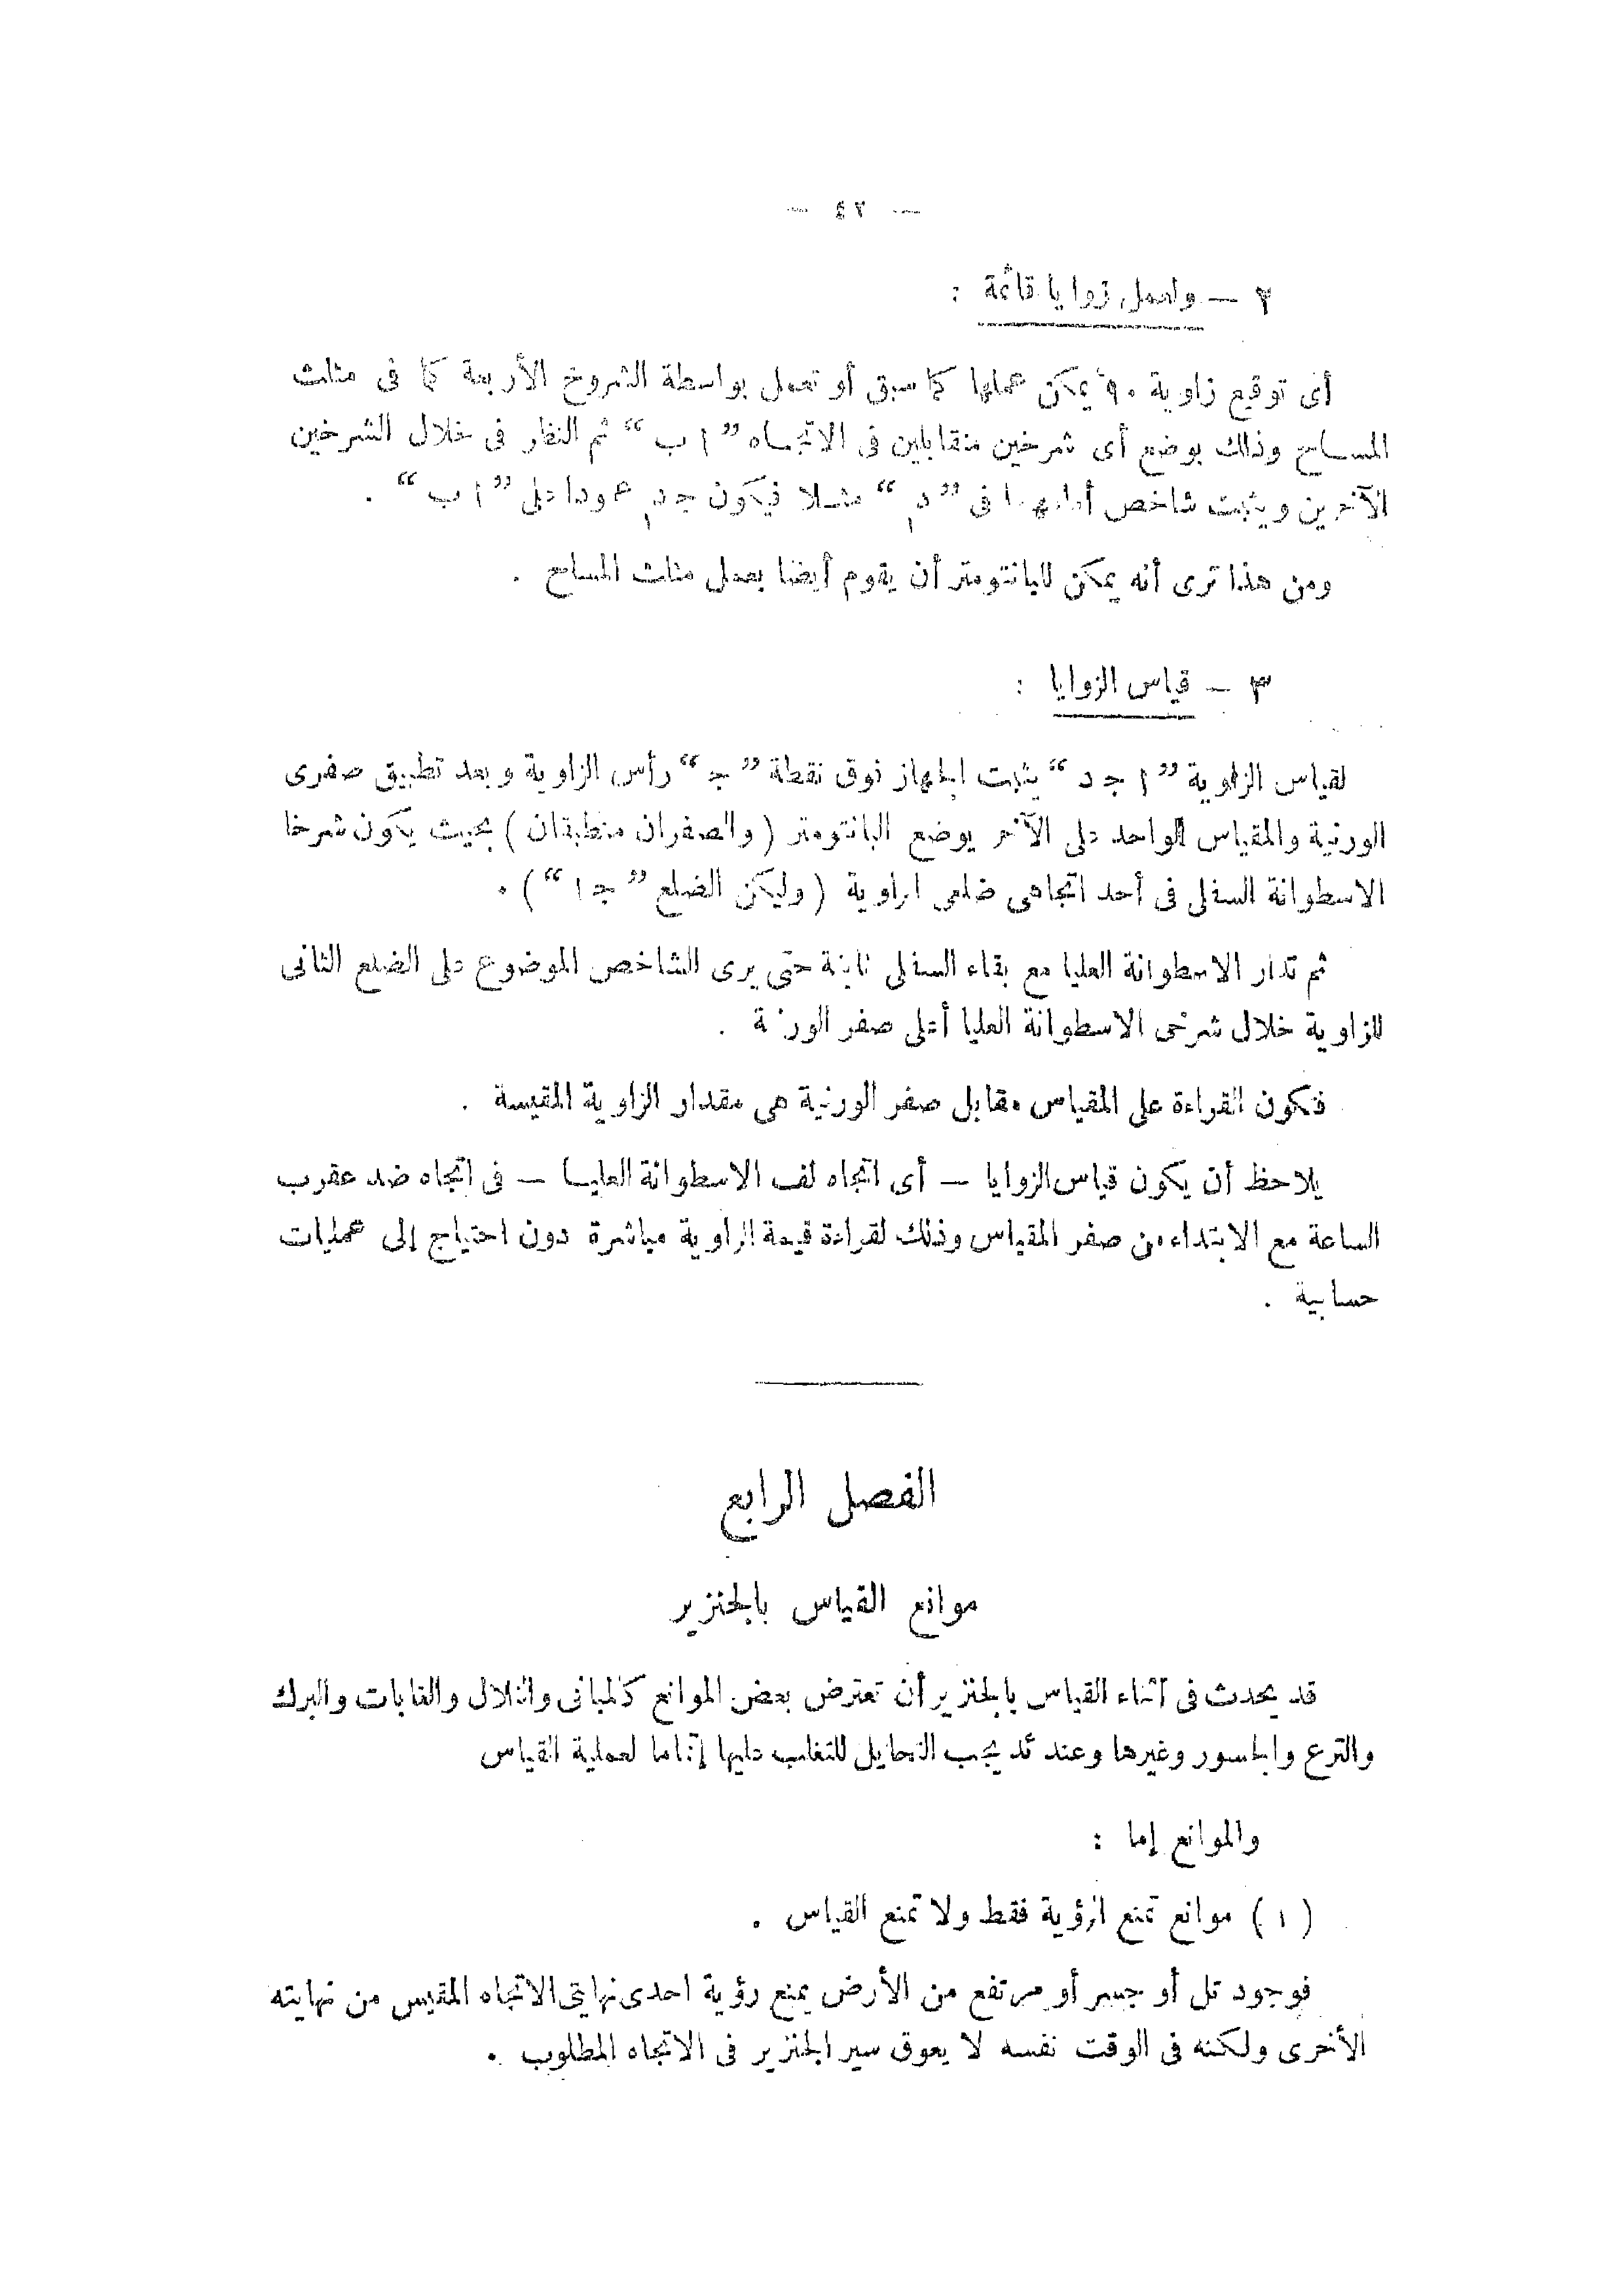 — ٤٧ —
٢ — ولعمل زوايا قائمة :
أى توقيع زاوية ٩٠° يمكن عملها كما سبق أو تعمل بواسطة الشروخ الأربعة كما فى مثلث
المساح وذلك بوضع أى شرخين متقابلين فى الاتجاه ”ا ب“ ثم النظر فى خلال الشرخين
الآخرين ويثبت شاخص أمامهما فى ”د“ مثلا فيكون جـ د عمودا على ”ا ب“ .
ومن هذا ترى أنه يمكن للبانتومتر أن يقوم أيضا بعمل مثلث المساح .
٣ — قياس الزوايا :
لقياس الزاوية ”ا جـ د“ يثبت الجهاز فوق نقطة ”جـ“ رأس الزاوية وبعد تطبيق صفرى
الورنية والمقياس الواحد على الآخر يوضع البانتومتر ( والصفران منطبقان ) بحيث يكون شرخا
الاسطوانة السفلى فى أحد اتجاهى ضلعى الزاوية ( وليكن الضلع ”جـ ا“ ) .
ثم تدار الاسطوانة العليا مع بقاء السفلى ثابتة حتى يرى الشاخص الموضوع على الضلع الثانى
للزاوية خلال شرخى الاسطوانة العليا أعلى صفر الورنية .
فتكون القراءة على المقياس مقابل صفر الورنية هى مقدار الزاوية المقيسة .
يلاحظ أن يكون قياس الزوايا — أى اتجاه لف الاسطوانة العليا — فى اتجاه ضد عقرب
الساعة مع الابتداء من صفر المقياس وذلك لقراءة قيمة الزاوية مباشرة دون احتياج إلى عمليات
حسابية .
الفصل الرابع
موانع القياس بالجنزير
قد يحدث فى أثناء القياس بالجنزير أن تعترض بعض الموانع كالمبانى والتلال والغابات والبرك
والترع والجسور وغيرها وعندئذ يجب التحايل للتغلب عليها إتماما لعملية القياس
والموانع إما :
( ١ ) موانع تمنع الرؤية فقط ولا تمنع القياس .
فوجود تل أو جسر أو مرتفع من الأرض يمنع رؤية احدى نهايتى الاتجاه المقيس من نهايته
الأخرى ولكنه فى الوقت نفسه لا يعوق سير الجنزير فى الاتجاه المطلوب .